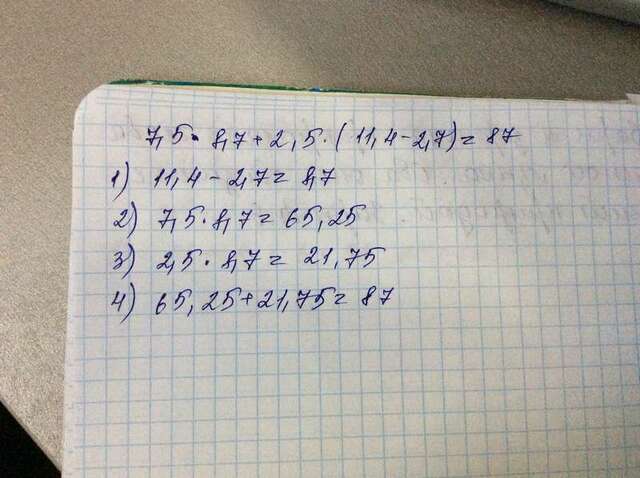 7,5 · 8,7 + 2,5 · (11,4 - 2,7) = 87
1) 11,4 - 2,7 = 8,7
2) 7,5 · 8,7 = 65,25
3) 2,5 · 8,7 = 21,75
4) 65,25 + 21,75 = 87